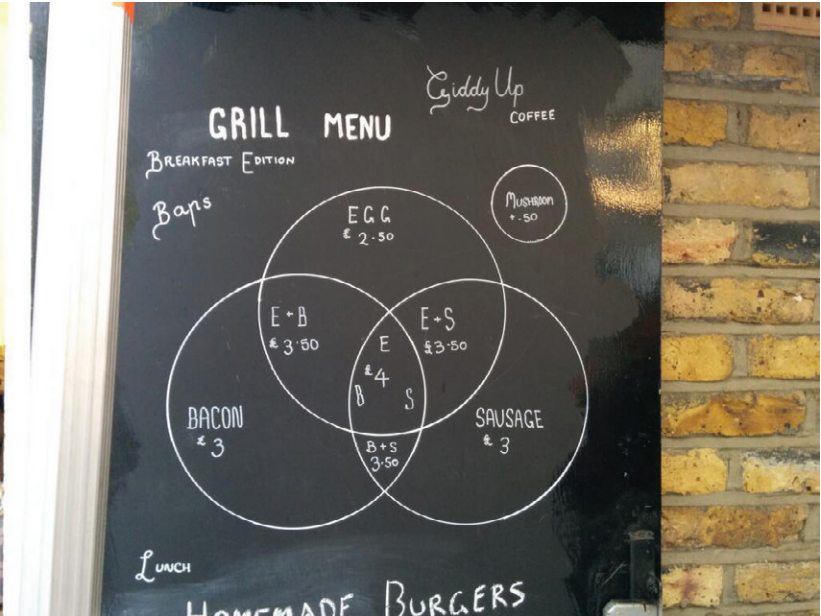 Giddy Up
COFFEE
GRILL MENU
BREAKFAST EDITION
Baps
MUSHROOM
+.50
EGG
£ 2.50
E+B
£3.50
E+S
£3.50
E
£4
B S
BACON
£3
SAUSAGE
£3
B+S
3.50
LUNCH
HOMEMADE BURGERS